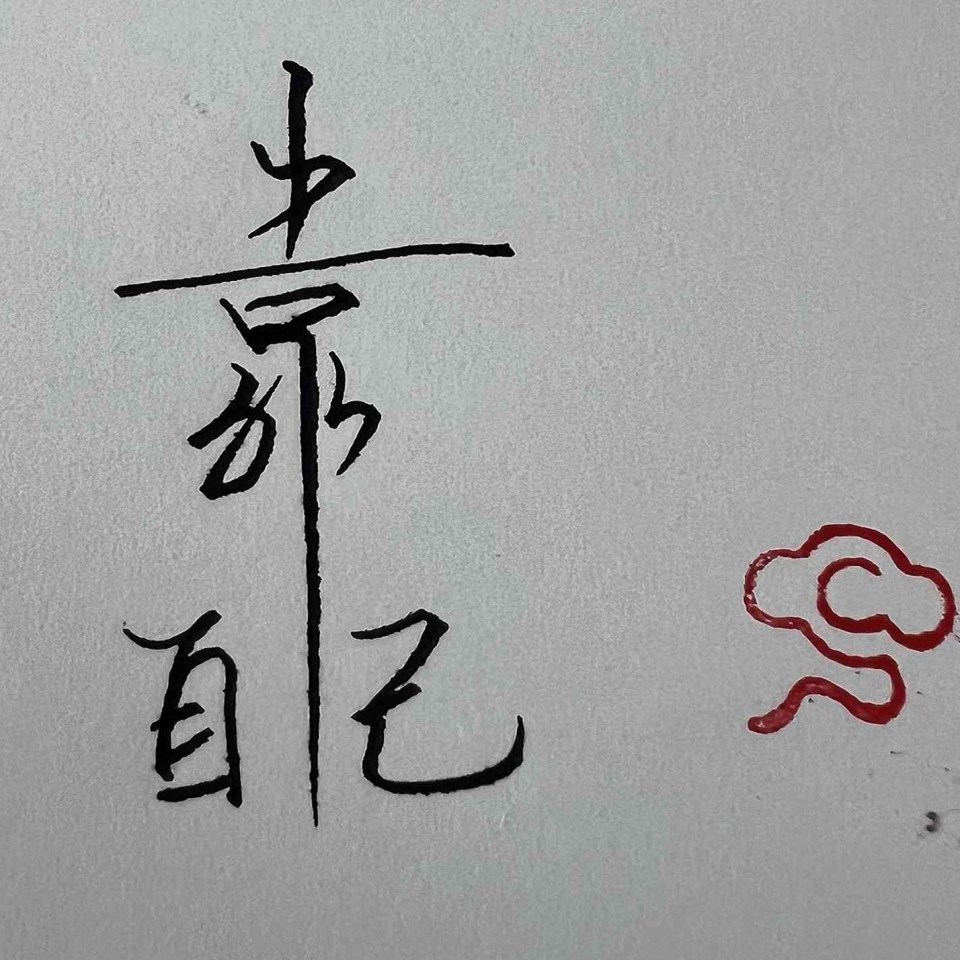 靠
自己